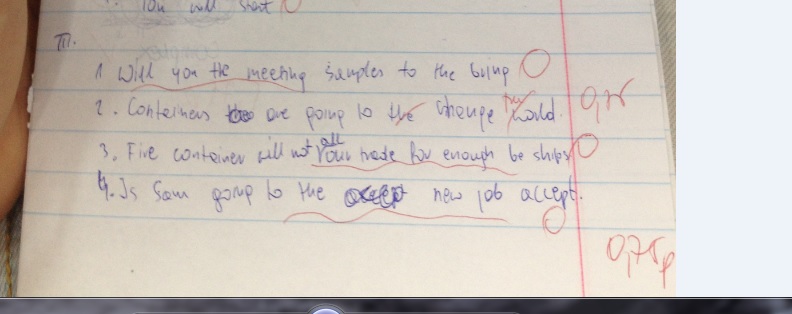 You will start 0
III.
1 Will you the meeting samples to the bring 0
2. Containers are going to the change the world. 0,75
3. Five container will not all your trade for enough be ships 0
4. Is Sam going to the new job accept. 0
0,75p